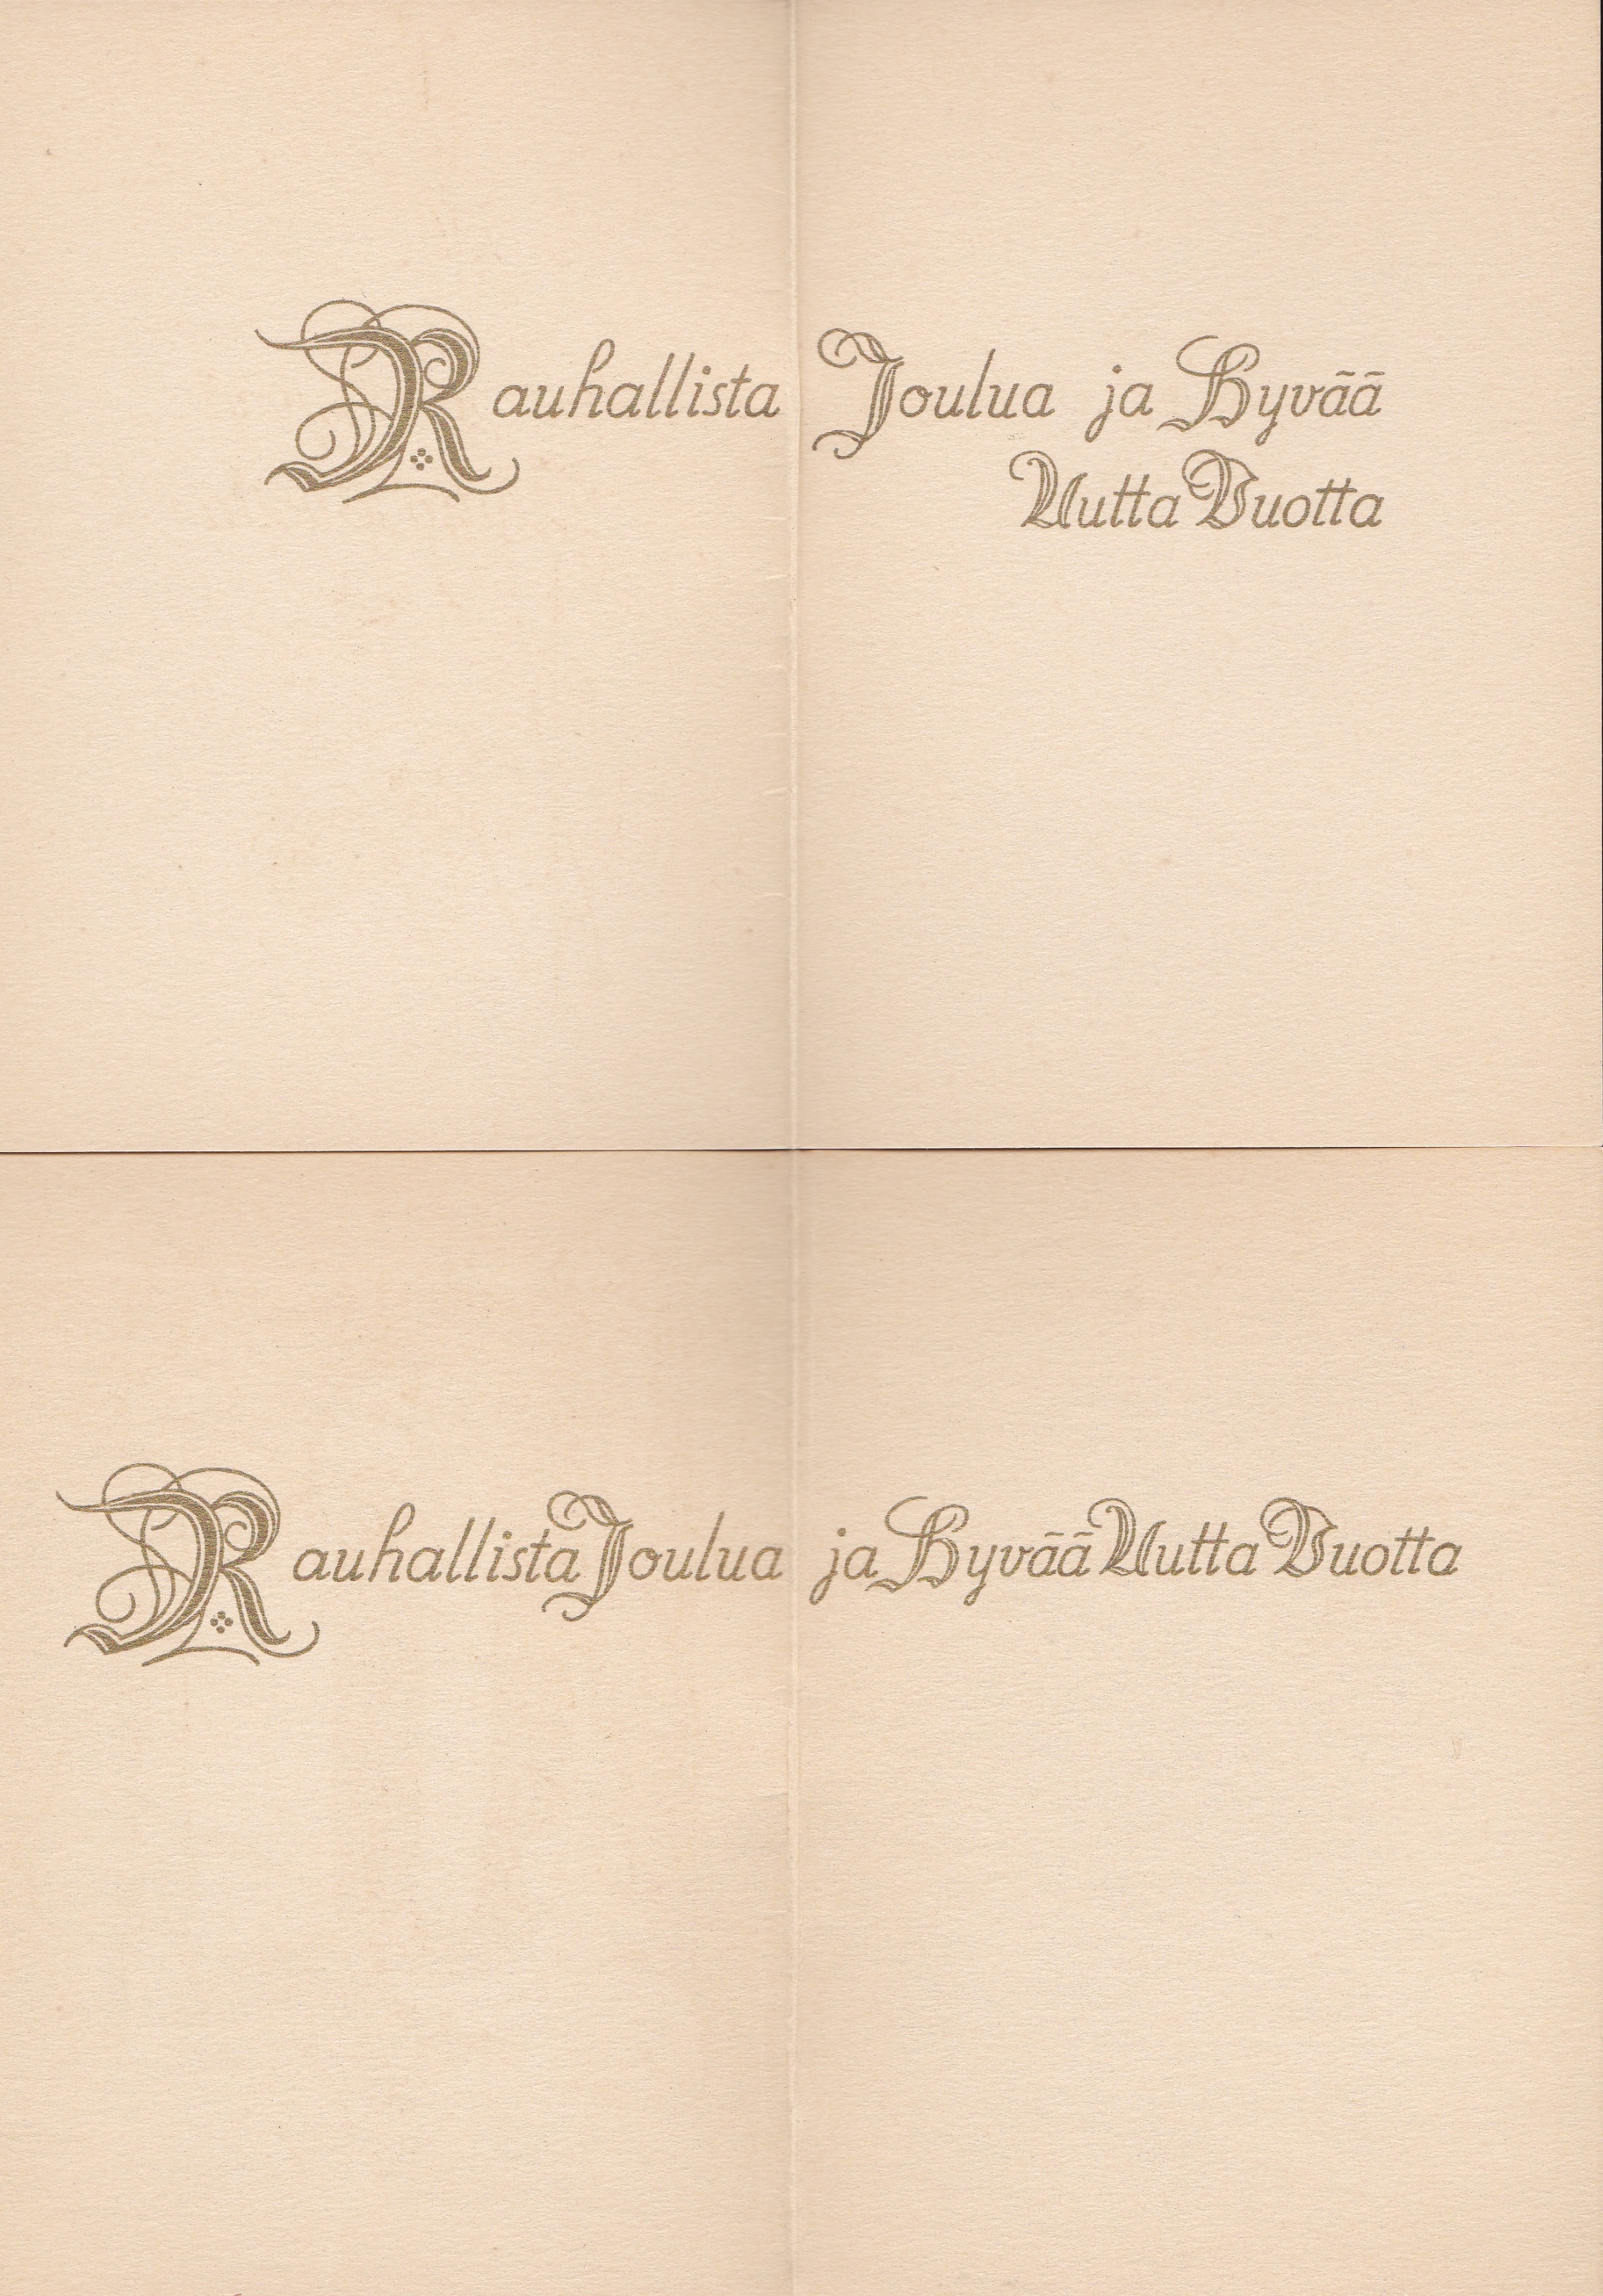 Rauhallista Joulua ja Hyvää
Uutta Vuotta
Rauhallista Joulua ja Hyvää Uutta Vuotta